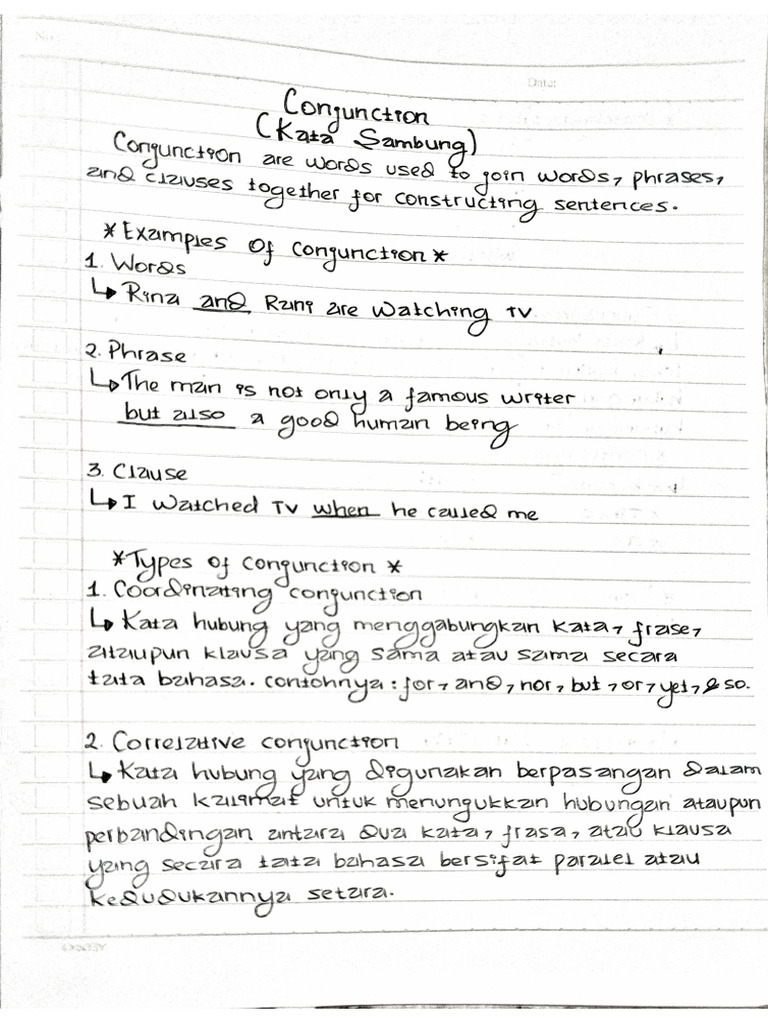 No.
Date:
Conjunction
(Kata Sambung)
Conjunction are words used to join words, phrases,
and clauses together for constructing sentences.
*Examples of conjunction*
1. Words
↳ Rina and Rani are watching TV
2. Phrase
↳ The man is not only a famous writer
but also a good human being
3. Clause
↳ I watched TV when he called me
*Types of conjunction*
1. Coordinating conjunction
↳ Kata hubung yang menggabungkan kata, frase,
ataupun klausa yang sama atau sama secara
tata bahasa. contohnya : for, and, nor, but, or, yet, & so.
2. Correlative conjunction
↳ Kata hubung yang digunakan berpasangan dalam
sebuah kalimat untuk menunjukkan hubungan ataupun
perbandingan antara dua kata, frasa, atau klausa
yang secara tata bahasa bersifat paralel atau
kedudukannya setara.